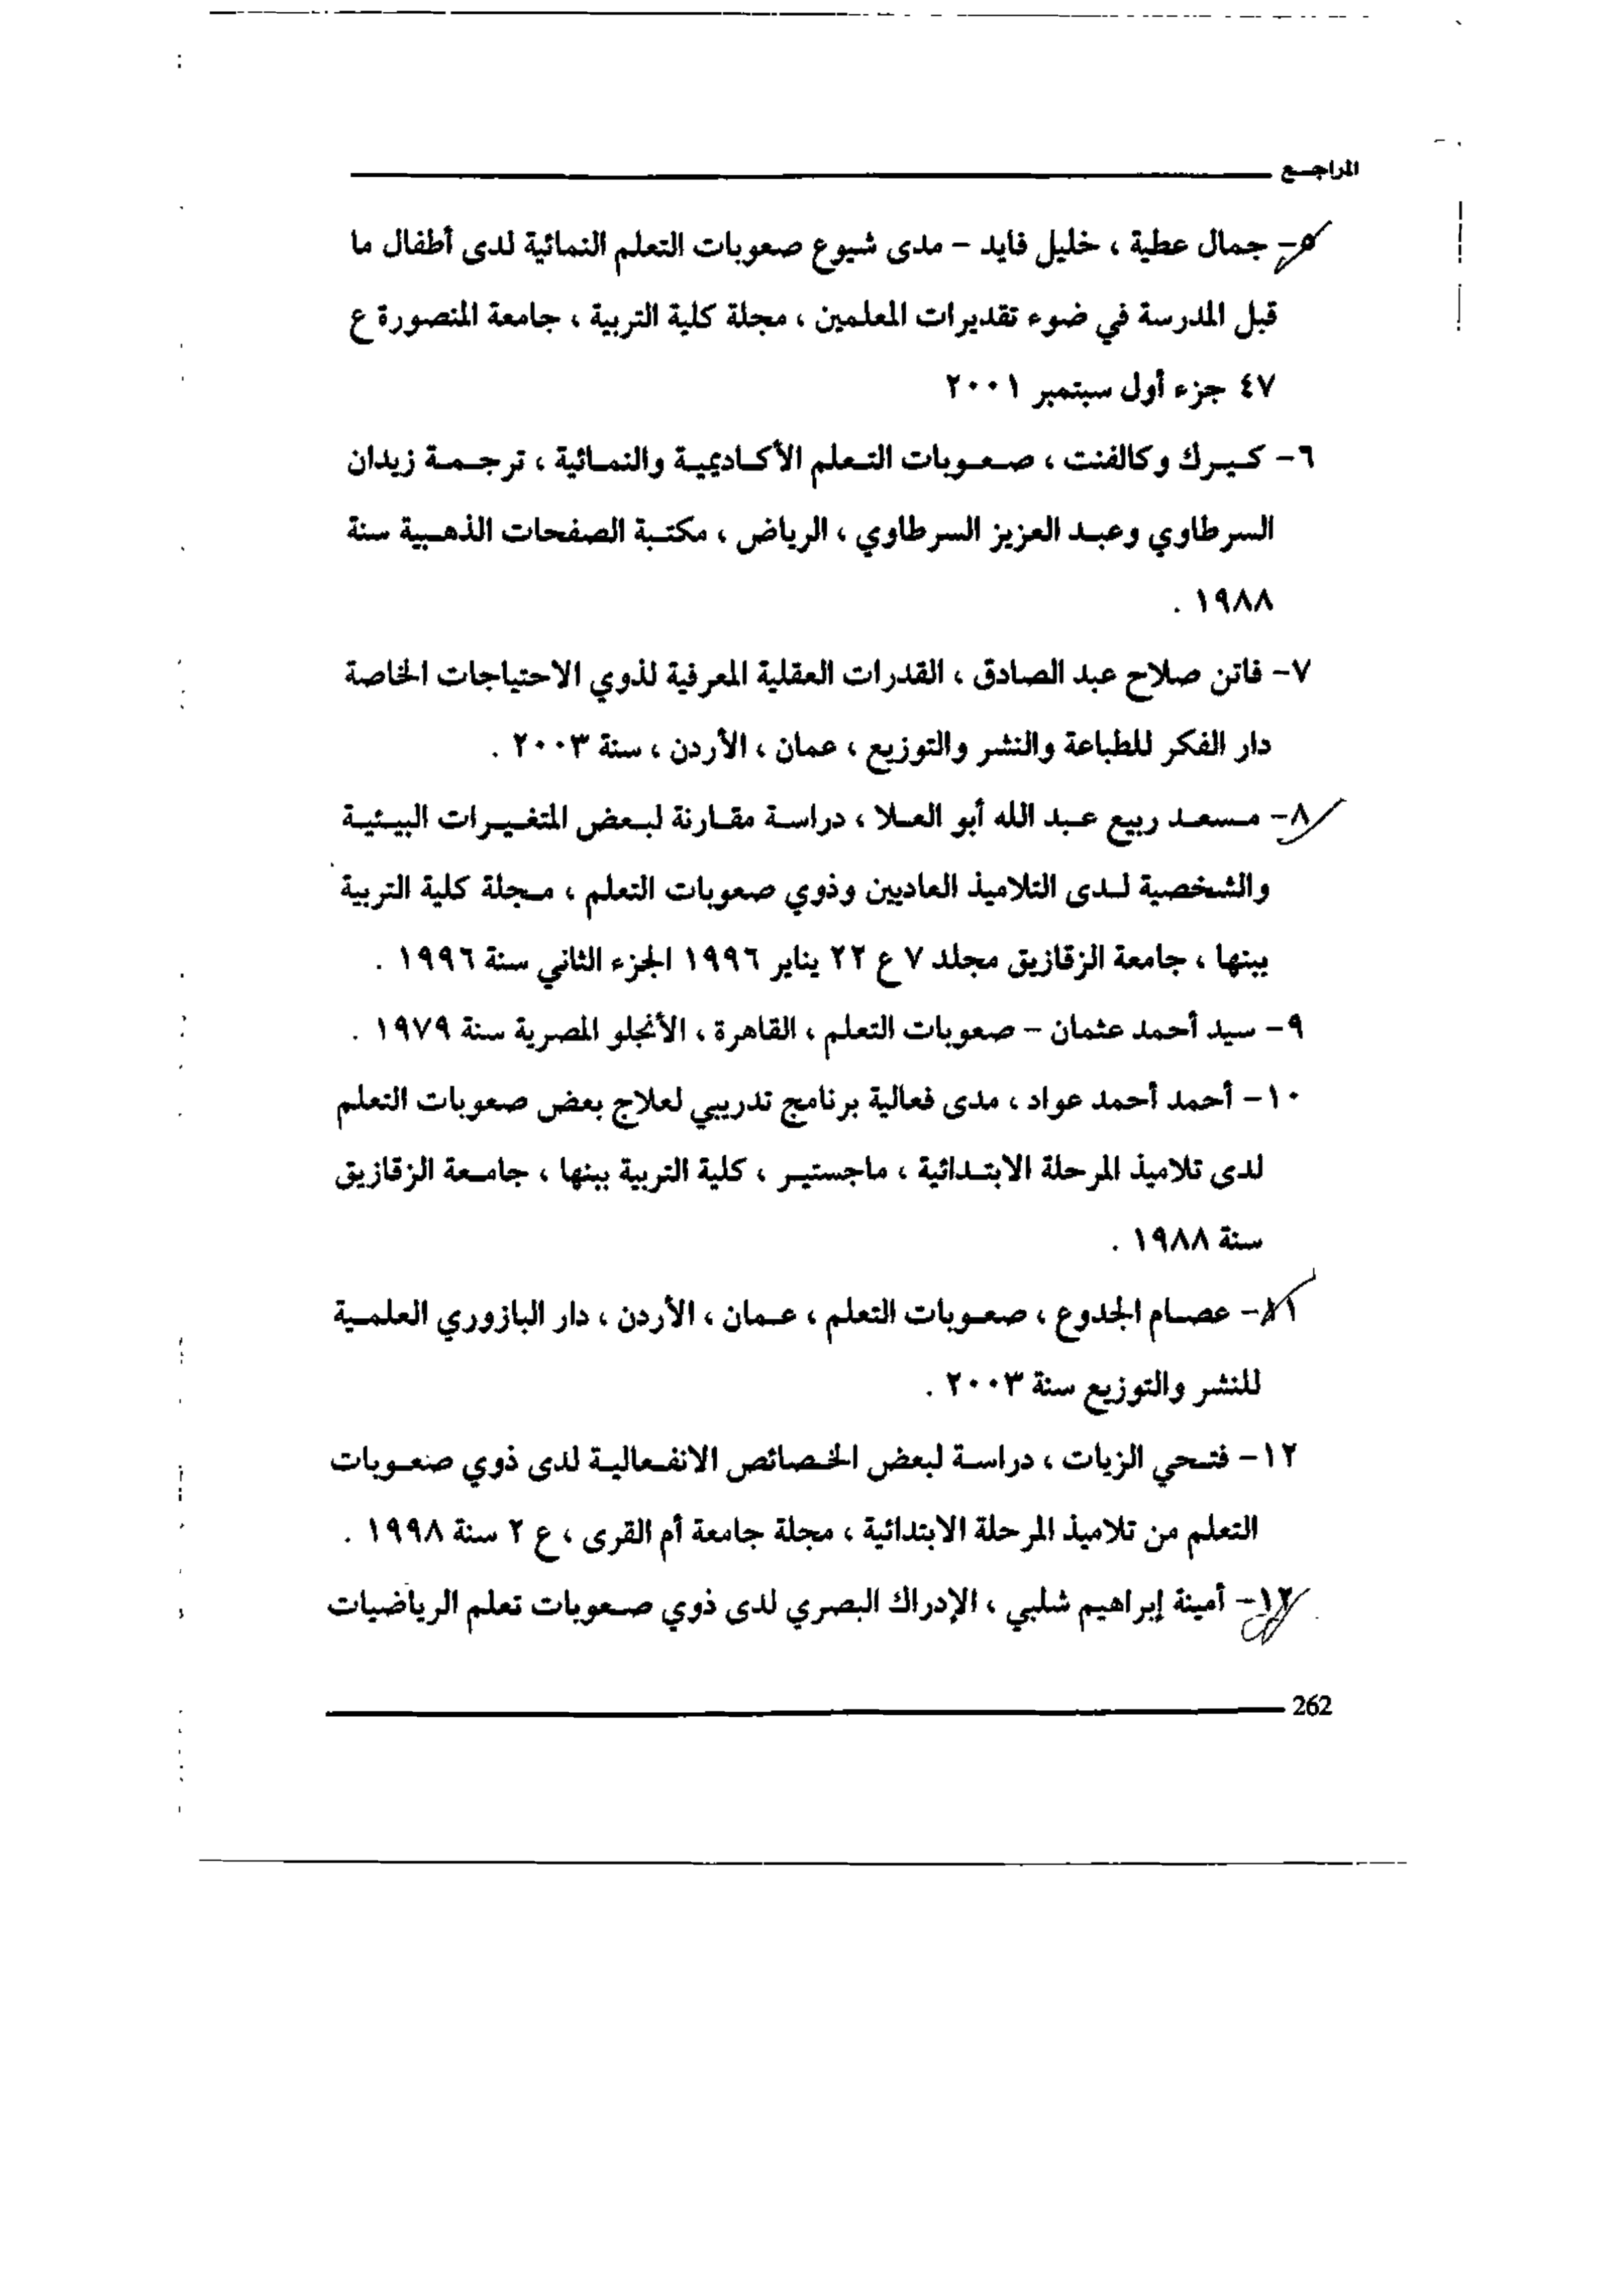 المراجع
٥- جمال عطية ، خليل فايد – مدى شيوع صعوبات التعلم النمائية لدى أطفال ما
قبل المدرسة في ضوء تقديرات المعلمين ، مجلة كلية التربية ، جامعة المنصورة ع
٤٧ جزء أول سبتمبر ٢٠٠١
٦- كيرك وكالفنت ، صعوبات التعلم الأكاديمية والنمائية ، ترجمة زيدان
السرطاوي وعبد العزيز السرطاوي ، الرياض ، مكتبة الصفحات الذهبية سنة
١٩٨٨ .
٧- فاتن صلاح عبد الصادق ، القدرات العقلية المعرفية لذوي الاحتياجات الخاصة
دار الفكر للطباعة والنشر والتوزيع ، عمان ، الأردن ، سنة ٢٠٠٣ .
٨- مسعد ربيع عبد الله أبو العلا ، دراسة مقارنة لبعض المتغيرات البيئية
والشخصية لدى التلاميذ العاديين وذوي صعوبات التعلم ، مجلة كلية التربية
ببنها ، جامعة الزقازيق مجلد ٧ ع ٢٢ يناير ١٩٩٦ الجزء الثاني سنة ١٩٩٦ .
٩- سيد أحمد عثمان – صعوبات التعلم ، القاهرة ، الأنجلو المصرية سنة ١٩٧٩ .
١٠- أحمد أحمد عواد ، مدى فعالية برنامج تدريبي لعلاج بعض صعوبات التعلم
لدى تلاميذ المرحلة الابتدائية ، ماجستير ، كلية التربية ببنها ، جامعة الزقازيق
سنة ١٩٨٨ .
١١- عصام الجدوع ، صعوبات التعلم ، عمان ، الأردن ، دار البازوري العلمية
للنشر والتوزيع سنة ٢٠٠٣ .
١٢- فتحي الزيات ، دراسة لبعض الخصائص الانفعالية لدى ذوي صعوبات
التعلم من تلاميذ المرحلة الابتدائية ، مجلة جامعة أم القرى ، ع ٢ سنة ١٩٩٨ .
١٣- أمينة إبراهيم شلبي ، الإدراك البصري لدى ذوي صعوبات تعلم الرياضيات
262